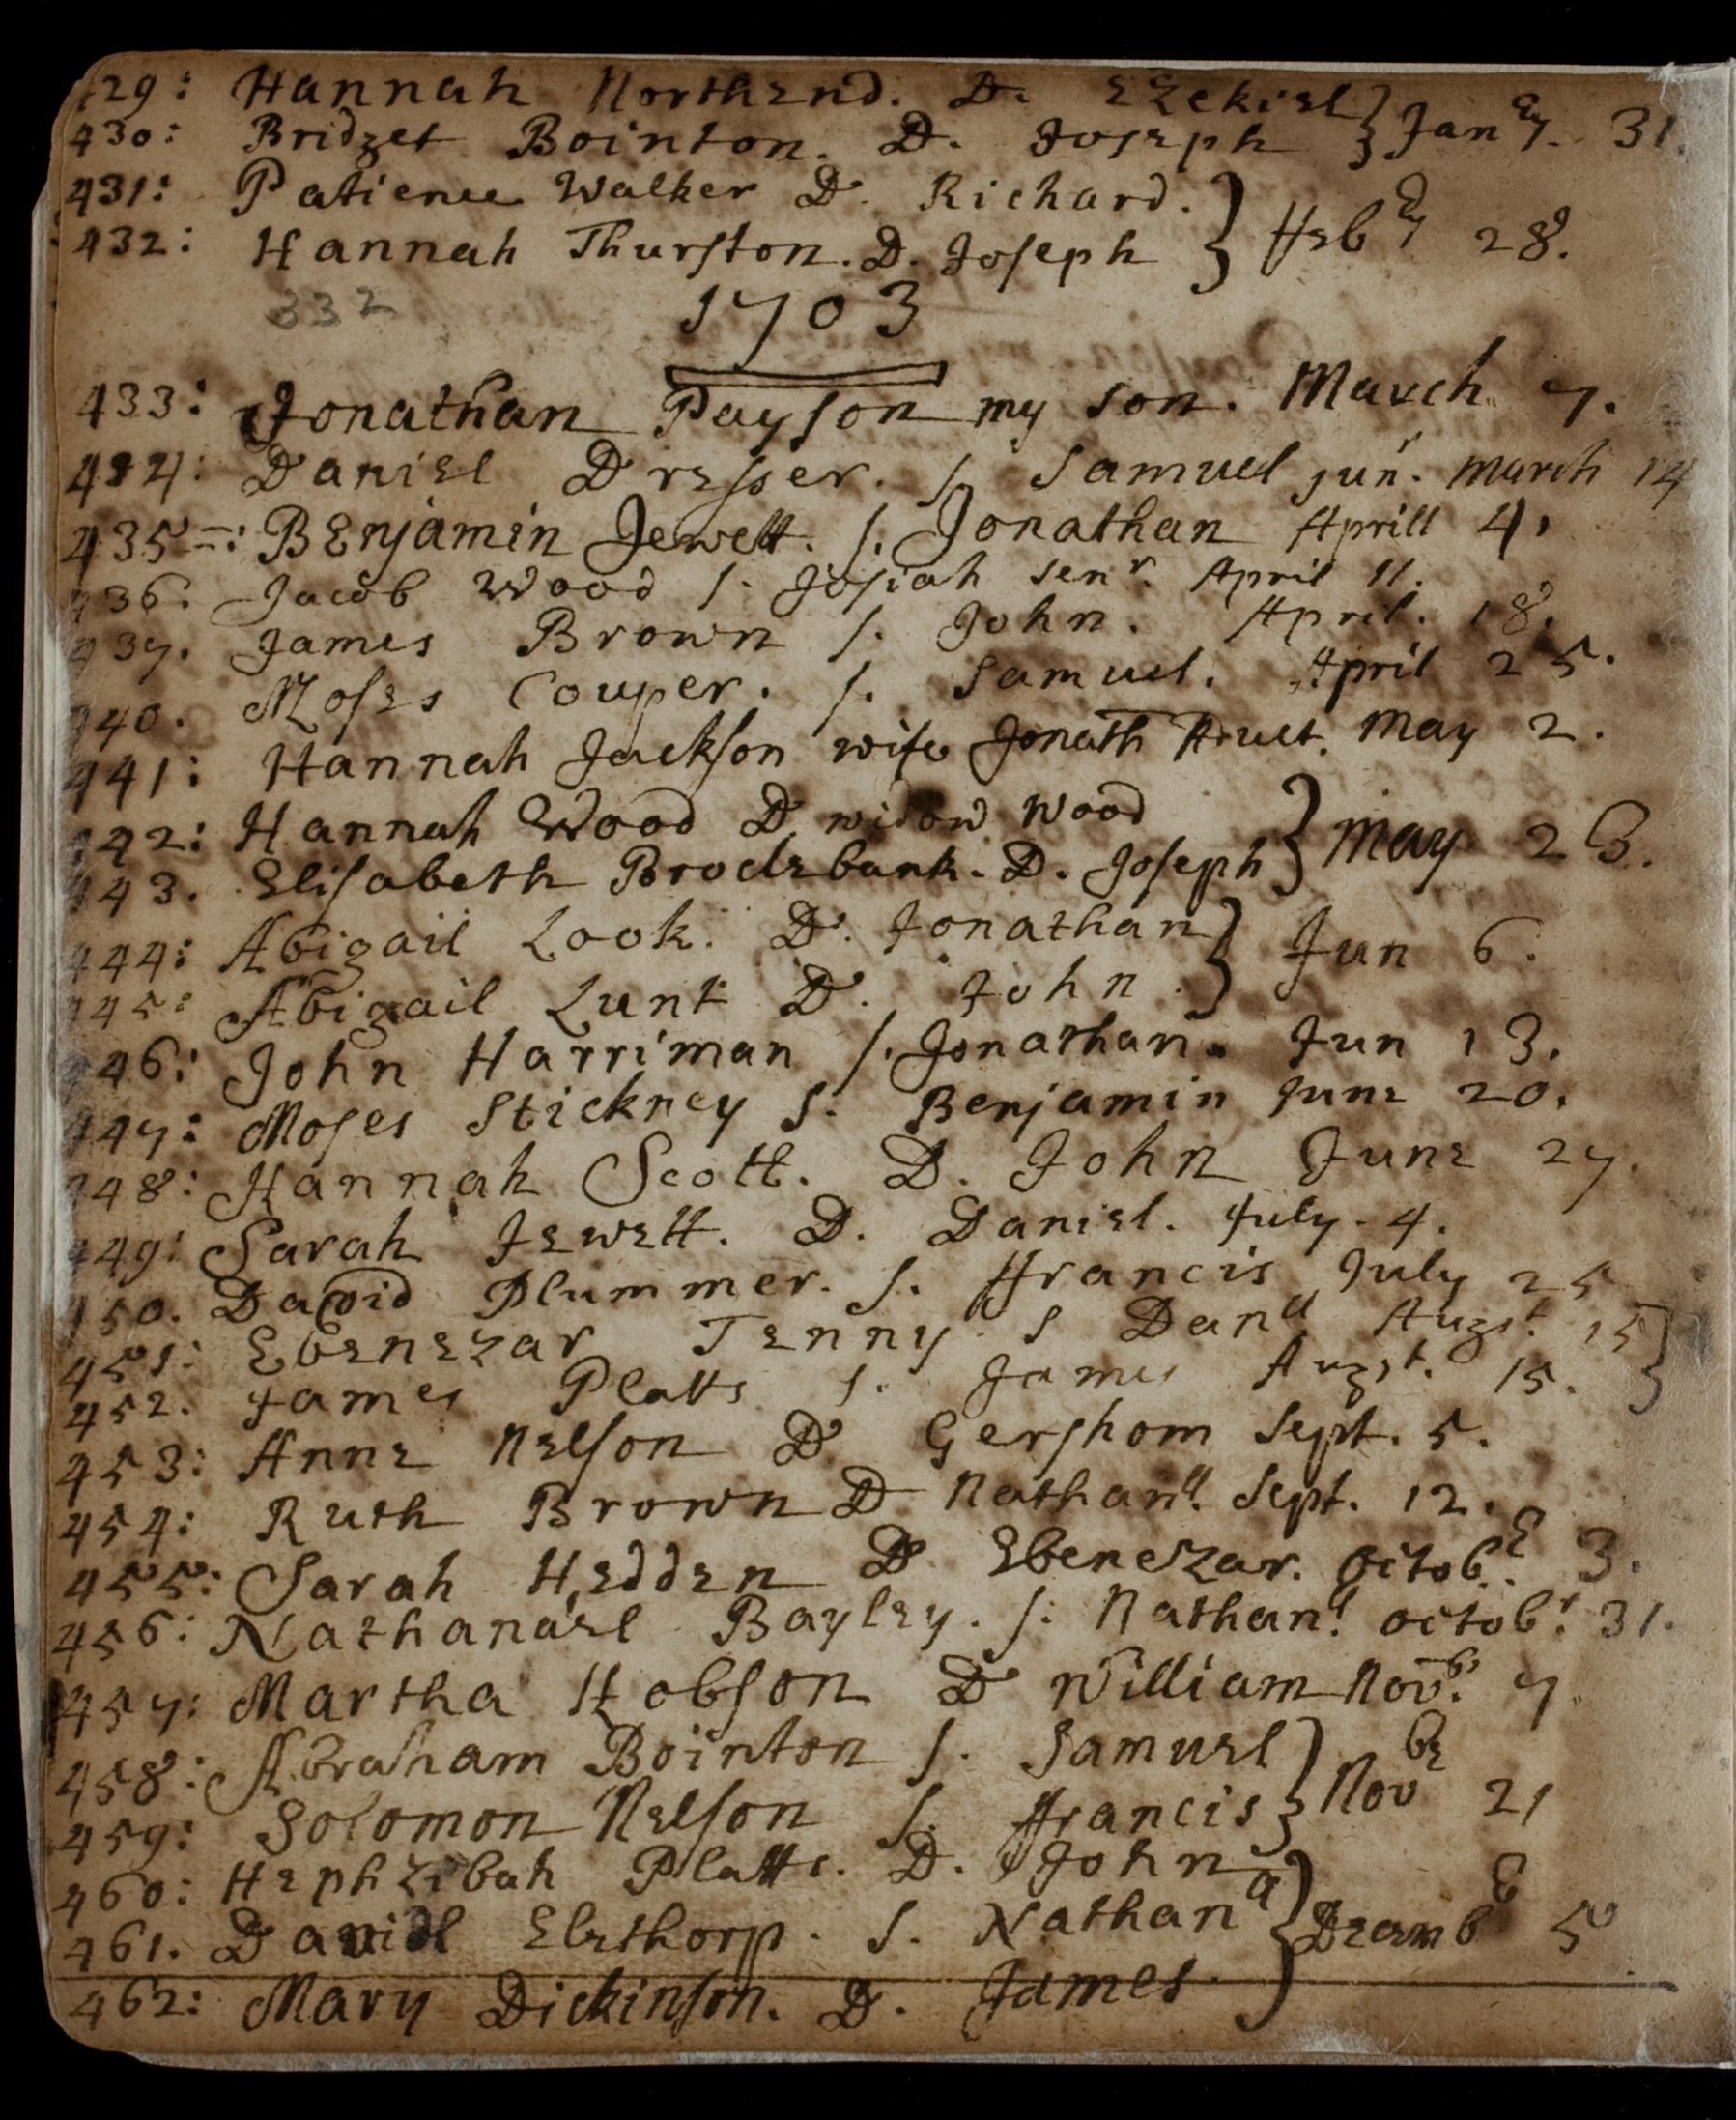 429: Hannah Northend. D. Ezekiel } Janry. 31.
430: Bridget Bointon. D. Joseph
431: Patience Walker D. Richard. } Febry 28.
432: Hannah Thurston. D. Joseph
332
1703
433: Jonathan Payson my son. March 7.
434: Daniel Dresser. s. Samuel junr. March 14
435: Benjamin Jewett. s. Jonathan Aprill 4.
436: Jacob Wood s. Josiah Senr. April 11.
437. James Brown s. John. April. 18.
440. Moses Couper. s. Samuel. April 25.
441: Hannah Jackson wife Jonath May 2.
442: Hannah Wood D widow Wood } May 23.
443. Elisabeth Broclebank. D. Joseph
444: Abigail Look. D. Jonathan } Jun 6.
445: Abigail Lunt D. John.
446: John Harriman s. Jonathan. Jun 13.
447: Moses Stickney s. Benjamin June 20.
448: Hannah Scott. D. John June 27.
449: Sarah Jewett. D. Daniel. July. 4.
450. David Plummer. s. Francis July 25
451: Ebenezar Tenny s Danll Augst. 15 }
452. James Platts s. James Augst. 15.
453: Anne Nelson D Gershom Sept. 5.
454: Ruth Brown D Nathanll. Sept. 12.
455: Sarah Hedden D Ebenezar. Octobr. 3.
456: Nathanael Bayley. s. Nathanll. Octobr. 31.
457: Martha Hobson D William Novbr. 7.
458: Abraham Bointon s. Samuel } Novbr 21
459: Solomon Nelson s. Francis
460: Hephzibah Platts. D. John
461. David Elethorp. s. Nathanll } Decembr 5
462: Mary Dickinson. D. James.